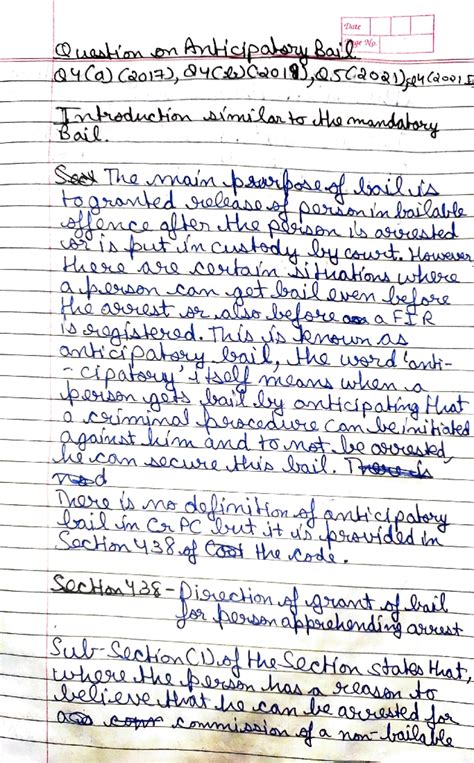 Date
Page No.
Question on Anticipatory Bail
Q4(a) (2017), Q4(b)(2018), Q5(2021), Q4(2021
Introduction similar to the mandatory
Bail.
The main purpose of bail is
to granted release of person in bailable
offence after the person is arrested
or is put in custody by court. However
there are certain situations where
a person can get bail even before
the arrest or also before a FIR
is registered. This is known as
anticipatory bail, the word 'anti-
- cipatory' itself means when a
person gets bail by anticipating that
a criminal procedure can be initiated
against him and to not be arrested,
he can secure this bail. There is
There is no definition of anticipatory
bail in CrPC but it is provided in
Section 438 of the code.
Section 438 - Direction of grant of bail
for person apprehending arrest
Sub-Section (1) of the Section states that,
where the person has a reason to
believe that he can be arrested for
commission of a non-bailable